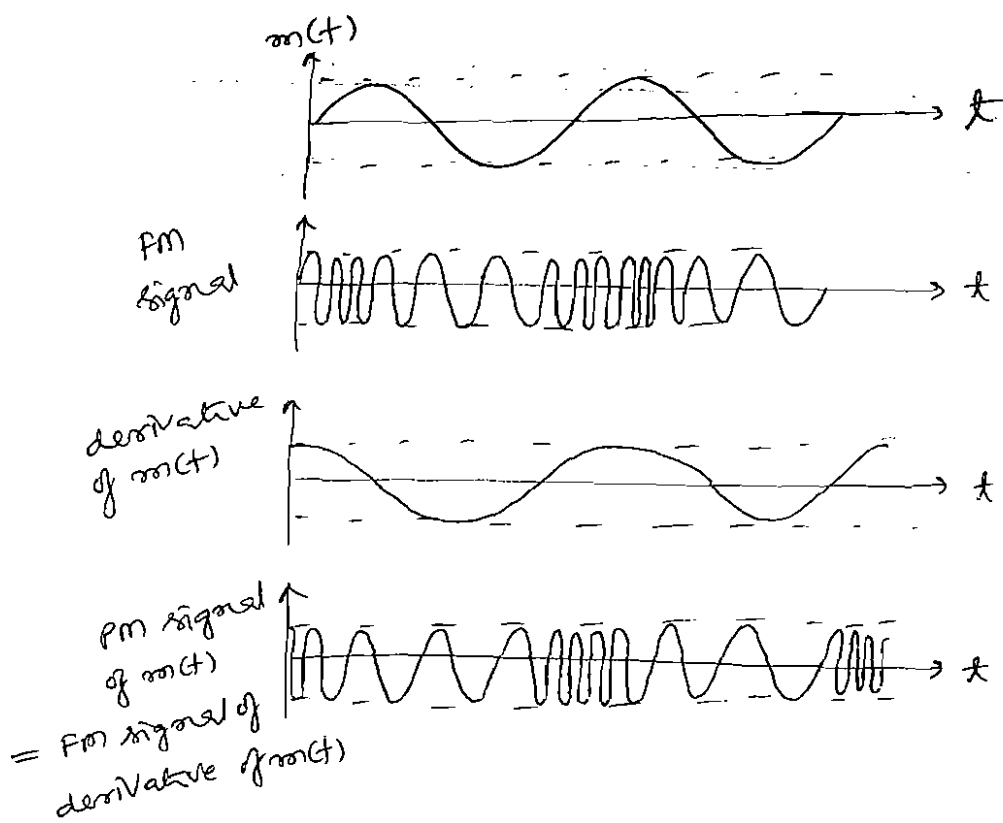 m(t)
t
FM
signal
t
derivative
of m(t)
t
PM signal
of m(t)
= FM signal of
derivative of m(t)
t